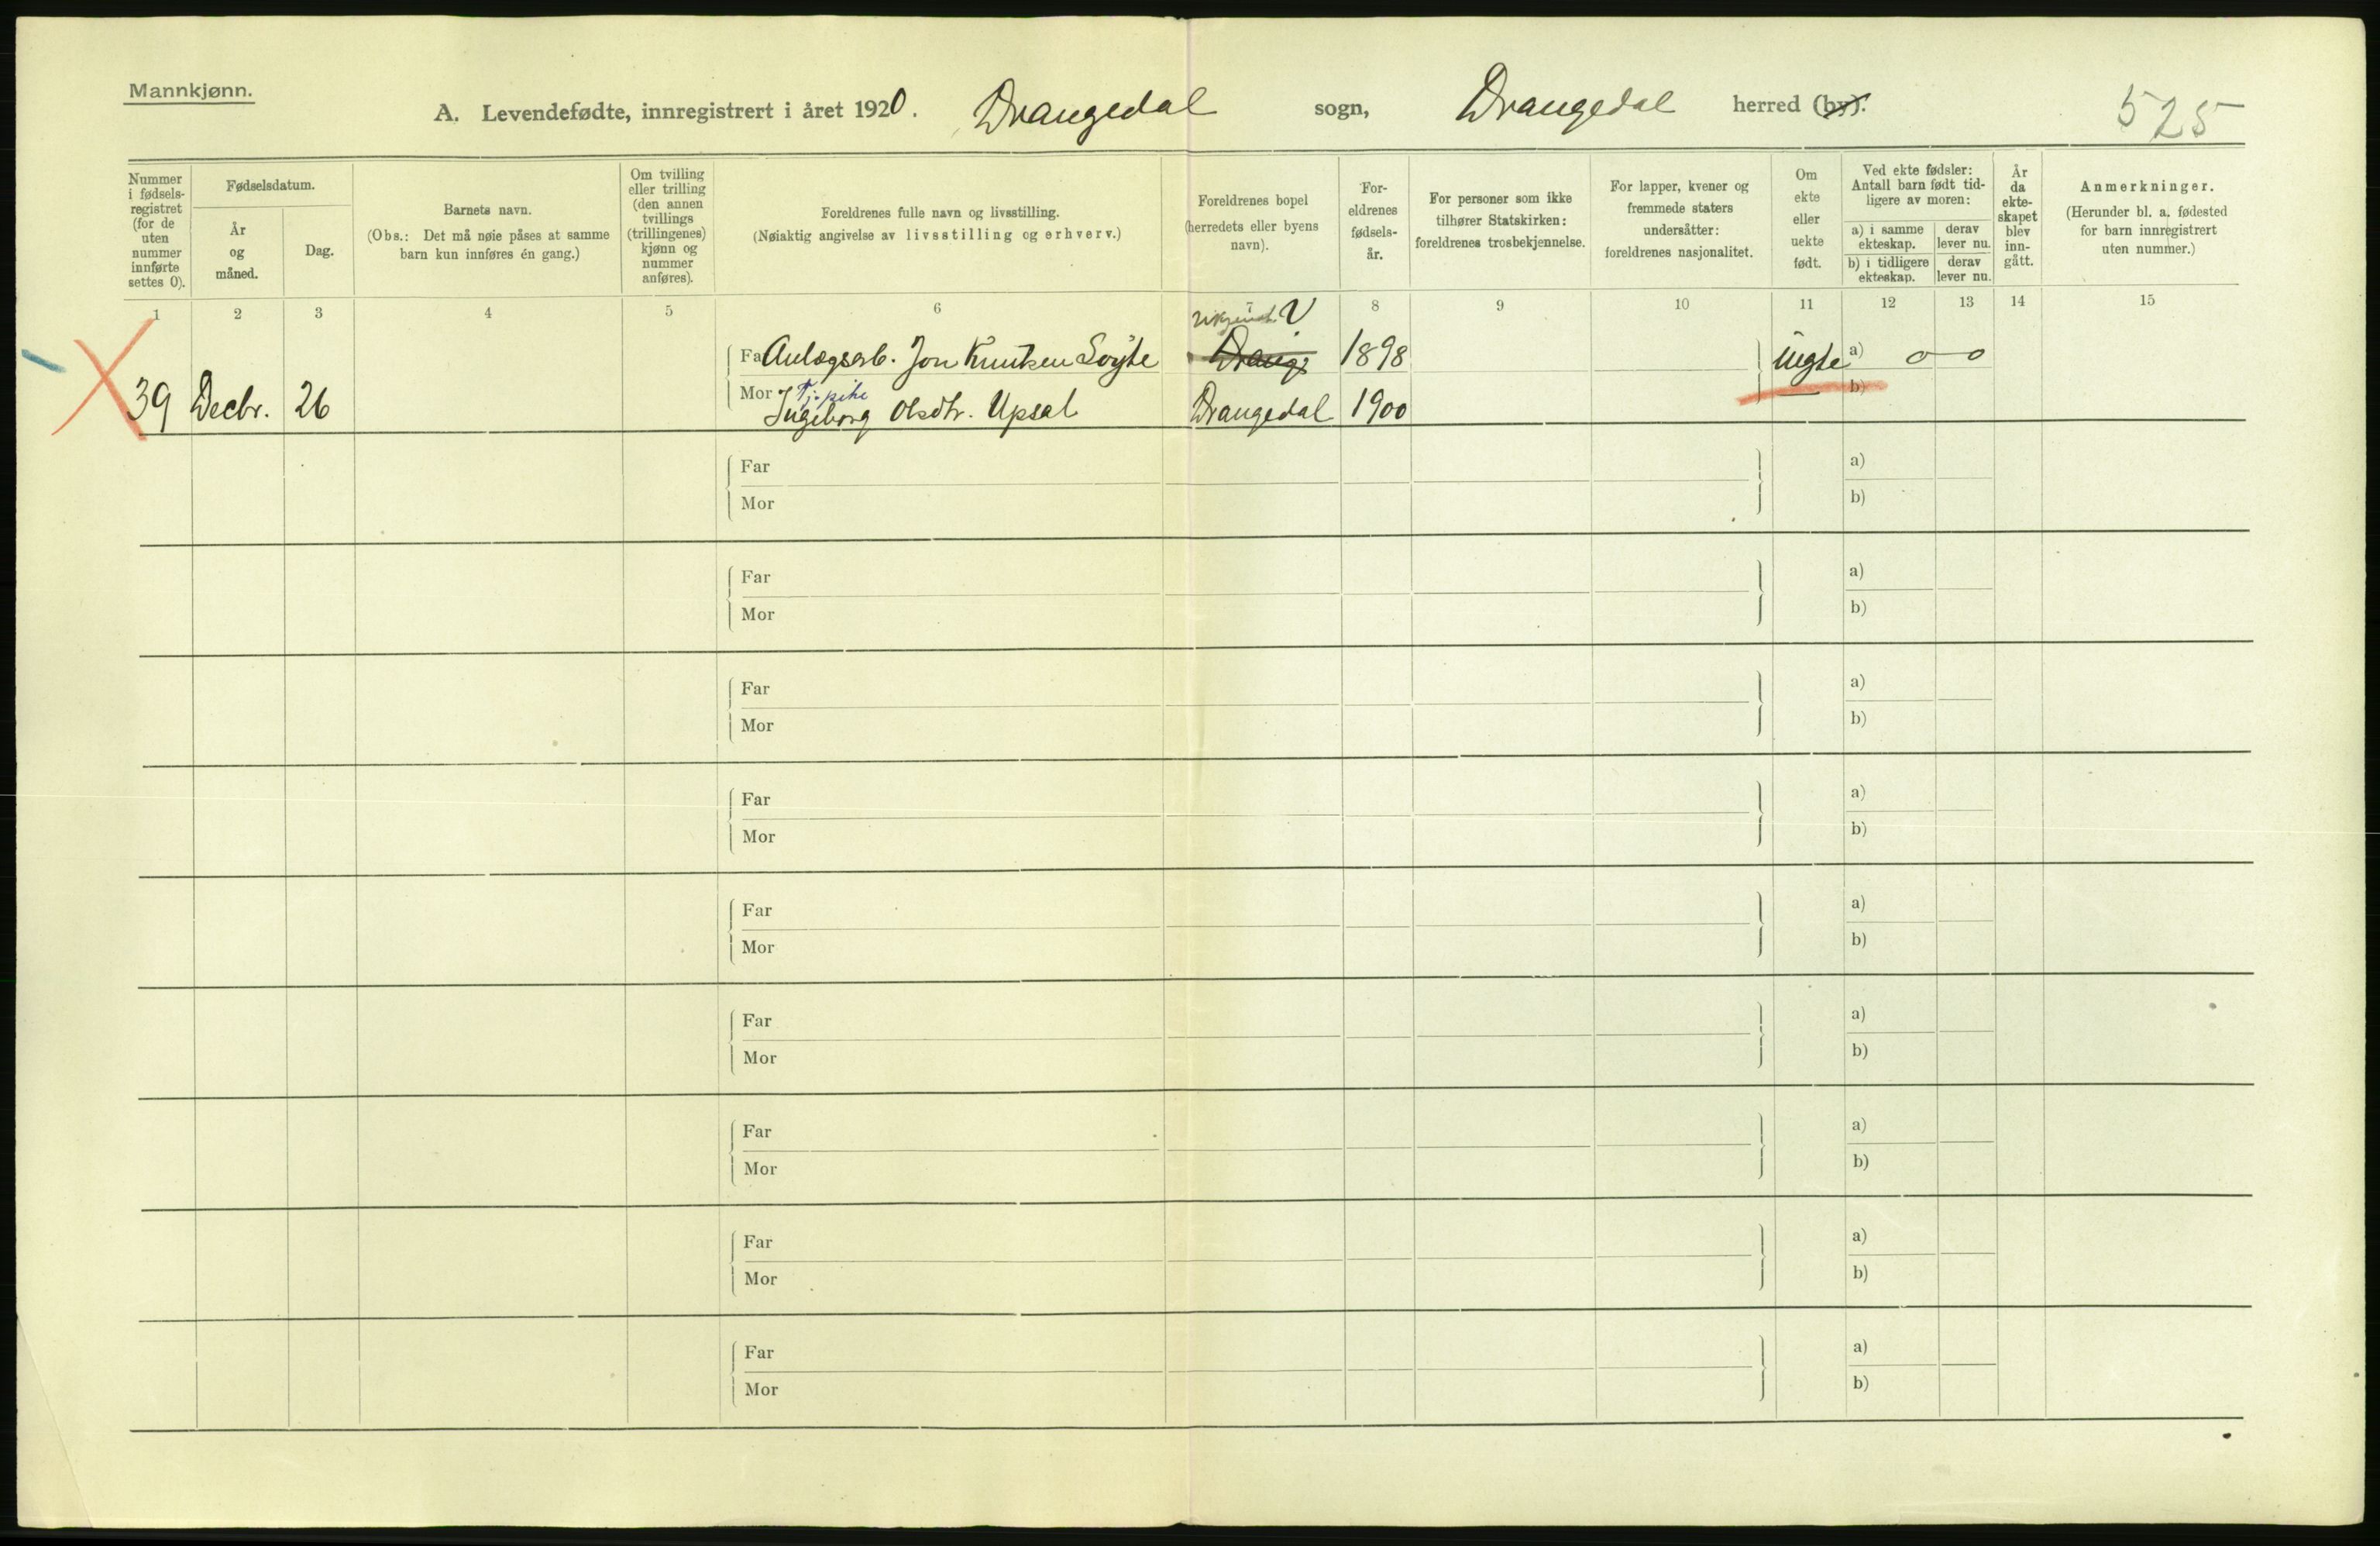 Mannkjønn.
A. Levendefødte, innregistrert i året 1920. Drangedal sogn, Drangedal herred (by).
525
Nummer i fødsels-registret (for de uten nummer innførte settes 0).
Fødselsdatum.
År og måned.
Dag.
Barnets navn.
(Obs.: Det må nøie påses at samme barn kun innføres én gang.)
Om tvilling eller trilling (den annen tvillings (trillingenes) kjønn og nummer anføres).
Foreldrenes fulle navn og livsstilling.
(Nøiaktig angivelse av livsstilling og erhverv.)
Foreldrenes bopel (herredets eller byens navn).
For-eldrenes fødsels-år.
For personer som ikke tilhører Statskirken: foreldrenes trosbekjennelse.
For lapper, kvener og fremmede staters undersåtter: foreldrenes nasjonalitet.
Om ekte eller uekte født.
Ved ekte fødsler: Antall barn født tid-ligere av moren:
a) i samme ekteskap.
derav lever nu.
b) i tidligere ekteskap.
derav lever nu.
År da ekte-skapet blev inn-gått.
Anmerkninger.
(Herunder bl. a. fødested for barn innregistrert uten nummer.)
1 2 3 4 5 6 8 9 10 11 12 13 14 15
Far Anlægsarb. Jon Knutsen 1898 uegte a) 0 0
39 Decbr. 26 Mor Tj. pike Ingeborg Olsdtr. Upsal Drangedal 1900 b)
Far a)
Mor b)
Far a)
Mor b)
Far a)
Mor b)
Far a)
Mor b)
Far a)
Mor b)
Far a)
Mor b)
Far a)
Mor b)
Far a)
Mor b)
Far a)
Mor b)